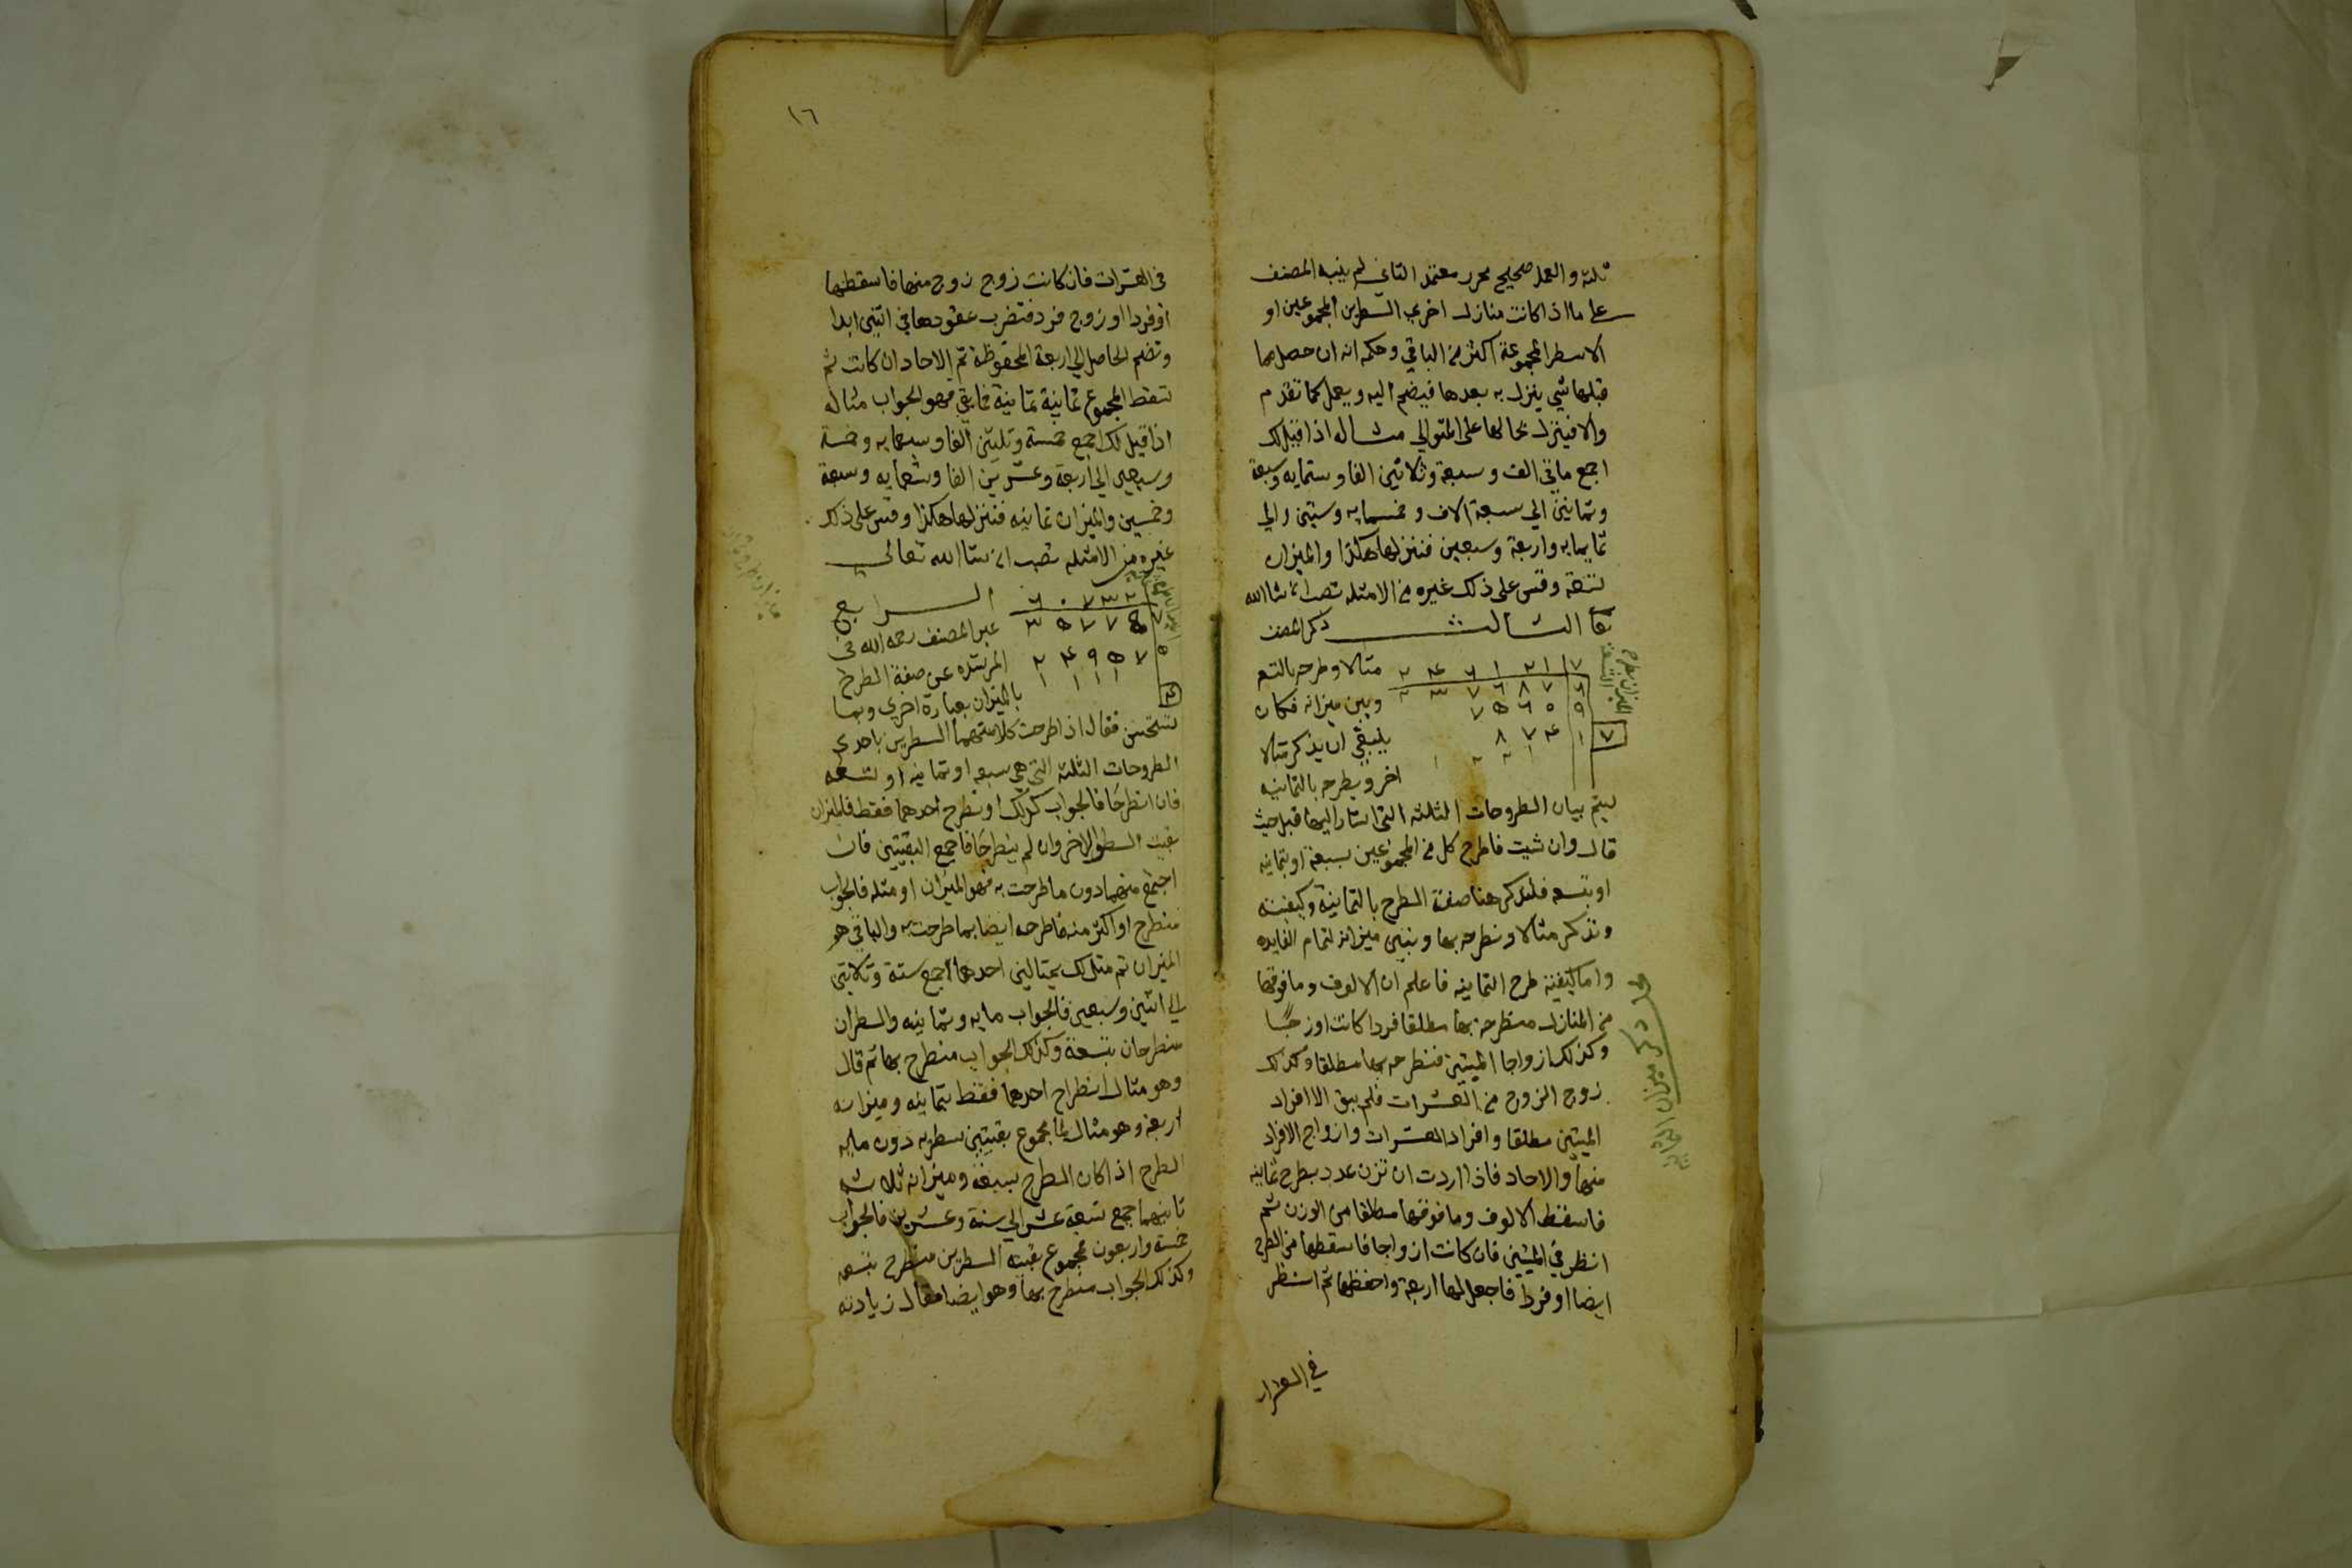 ثلثه والعمل صحيح محرر معتمد الثاني لم ينبه المصنف
على ما اذا كانت منازل احرى السطرين المجموعين او
الاسطر المجموعة اكثر من الباقي وحكمه انه ان حصل مما
قبلها شي ينزل به بعدها فيضم اليه ويعمل كما تقدم
والا فينزل بحالها على المتوالي مثاله اذا قيل لك
اجمع مايتي الف وسبعة وثلاثين الفا وستمايه وسبعة
وثمانين الى سبعة الاف وخمسمايه وستين والى
ثمانمايه واربعة وسبعين فننزلها هكذا والميزان
تسعة وقس على ذلك غيره من الامثله تصب ان شا الله
تعا الثالث ذكر المصنف
الميزان بطرح التسعة
٢ ٤ ٦ ١ ٢ ١ ٧ مثالا وطرحه بالتسع
٢ ٣ ٧ ٦ ٨ ٧ ٦ وبين ميزانه فكان
٧ ٥ ٦ ٠ ٩
٨ ٧ ٤ ١ ٧ ينبغي ان يذكر مثالا
اخر ويطرحه بالثمانيه
ليتم بيان الطروحات الثلثه التي اشار اليها قبل حيث
قال وان شيت فاطرح كل من المجموعين بسبعة او بثمانيه
او بتسعه فلنذكر هنا صفة الطرح بالثمانية وكيفيته
ونذكر مثالا ونطرحه بها ونبين ميزانه لتمام الفايده
واما كيفية طرح الثمانيه فاعلم ان الالوف وما فوقها
من المنازل منطرحه بها مطلقا فردا كانت او زوجا
وكذلك ازواجا الميتين فنطرحه بها مطلقا وكذلك
زوج الزوج من العشرات فلم يبق الا افراد
الميتين مطلقا وافراد العشرات وازواج الافراد
منها والاحاد فاذا اردت ان تزن عدد بطرح ثمانيه
فاسقط الالوف وما فوقها مطلقا من الوزن ثم
انظر في الميتين فان كانت ازواجا فاسقطها من الطرح
ايضا او فردا فاجعل لها اربعة واحفظها ثم انظر
في العشرات
١٦
في العشرات فان كانت زوج زوج منها فاسقطها
او فردا او زوج فرد فتضرب عقودها في اثنين ابدا
وتضم الحاصل الى اربعة المحفوظة ثم الاحاد ان كانت ثم
تسقط المجموع ثمانية ثمانية فما بقي فهو الجواب مثاله
اذا قيل لك اجمع خمسة وثلثين الفا وسبعمايه وخمسة
وسبعين الى اربعة وعشرين الفا وتسعمايه وسبعة
وخمسين والميزان ثمانيه فننزلها هكذا وقس على ذلك
غيره من الامثله تصب ان شا الله تعالى
٦ ٠ ٧ ٣ ٢ الرابع
٣ ٥ ٧ ٧ ٥ ٧ عبر المصنف رحمه الله في
٢ ٤ ٩ ٥ ٧ ٥ المرشده عن صفة الطرح
١ ١ ١ ١ ٤ بالميزان بعبارة اخرى وبها
تستحسن فقال اذا طرحت كلا منهما السطرين باحدى
الطروحات الثلثه التي هي سبعه او ثمانيه او تسعه
فان انطرحا فالجواب كذلك او نطرح احدهما فقط فالميزان
بقيت السطر الاخر وان لم ينطرحا فاجمع البقيتين فان
اجتمع منهما دون ما طرحت به فهو الميزان او مثله فالجواب
منطرح او اكثر منه فاطرحه ايضا بما طرحت به والباقي هو
الميزان ثم مثل لك بمثالين احدهما اجمع ستة وثلاثين
الى اثنين وسبعين فالجواب مايه وثمانيه والسطران
منطرحان بتسعة وكذلك الجواب منطرح بها ثم قال
وهو مثال انطراح احدهما فقط بثمانيه وميزانه
اربعة وهو مثال لما مجموع بقيتين سطريه دون ما به
الطرح اذا كان الطرح بسبعة وميزانه ثلاثه
ثانيهما جمع تسعة عشر الى ستة وعشرين فالجواب
خمسه واربعون مجموع بقية السطرين منطرح بتسعه
وكذلك الجواب منطرح بها وهو ايضا مثال زيادته